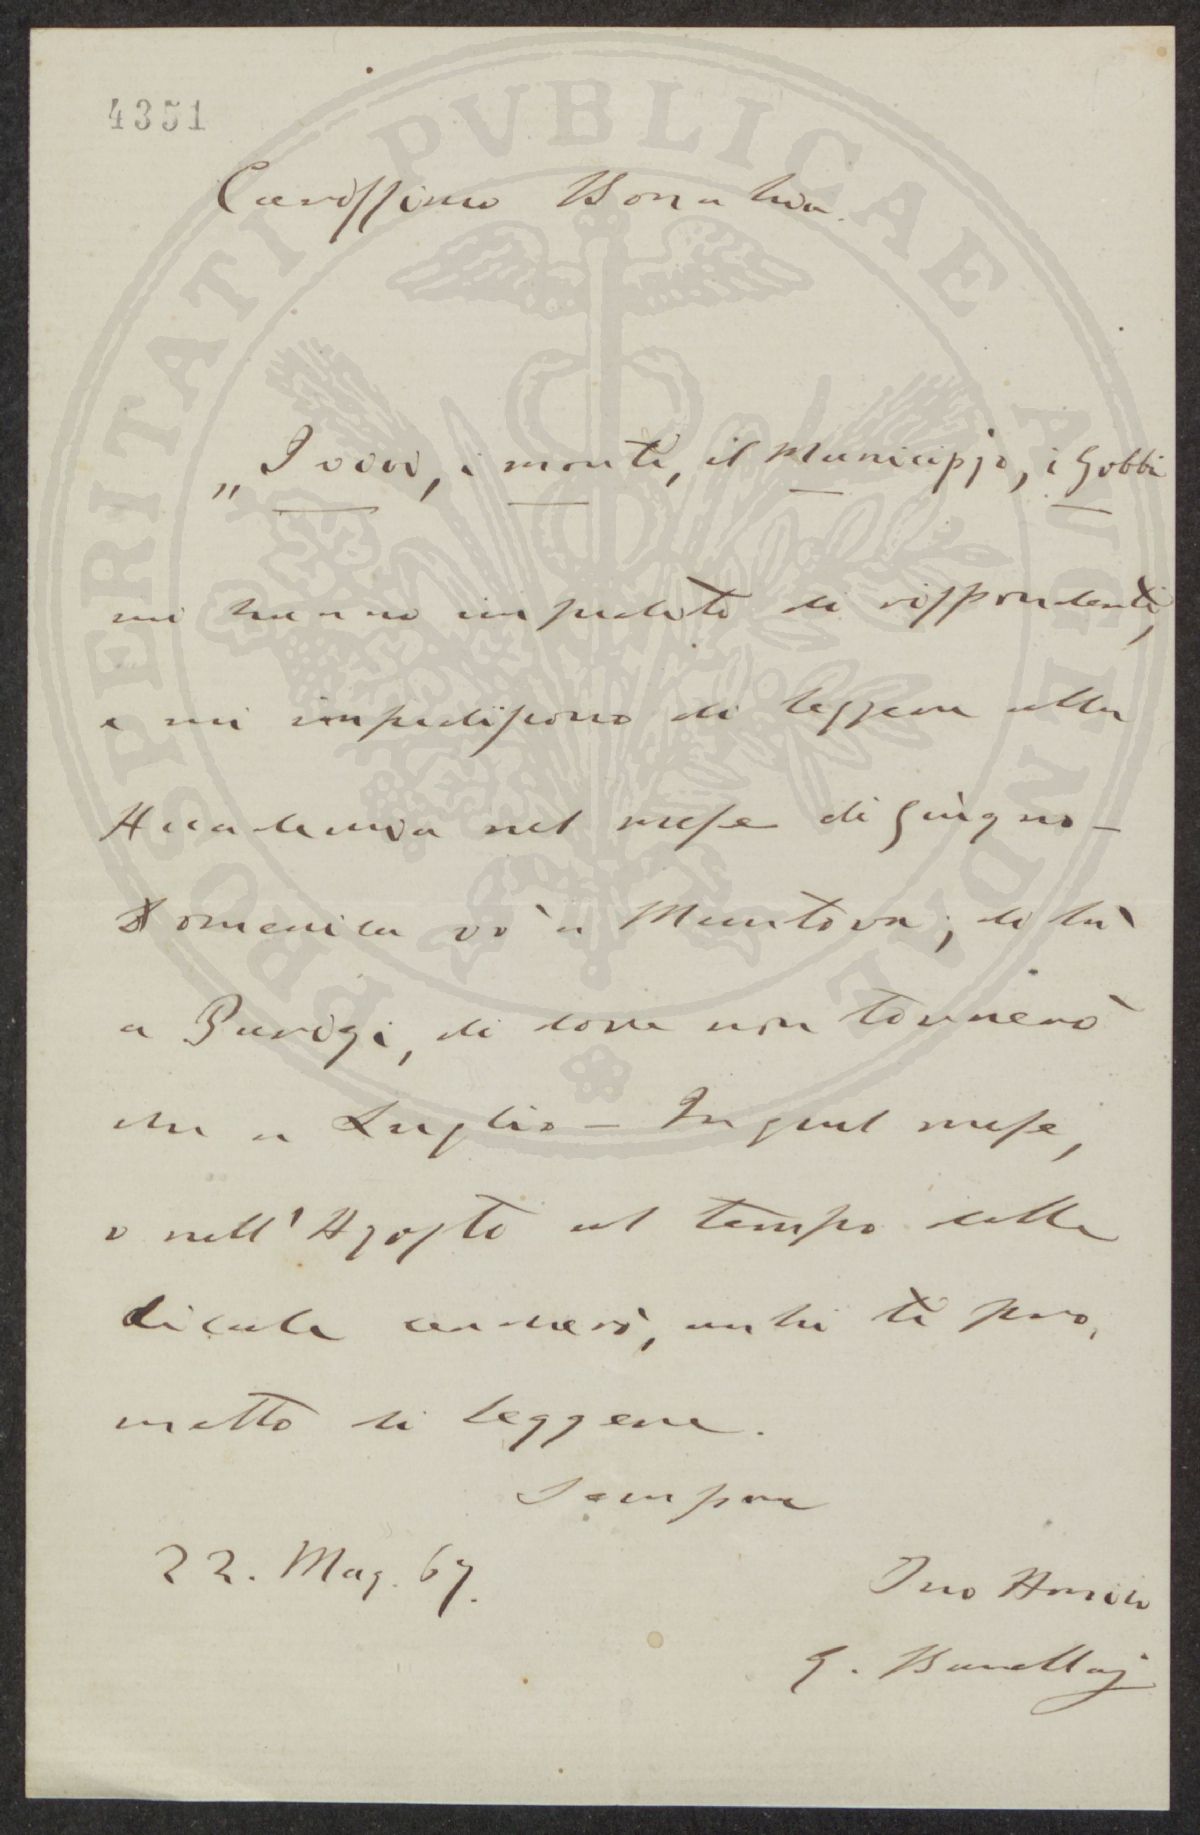 4351
Carissimo
i monti, il Municipjo, i Gobbi
mi hanno impedito di risponderti,
e mi impediscono di leggere alla
Accademia nel mese di Giugno –
Domenica vò a Mantova; di là
a Parigi, di dove non tornerò
che a Luglio – In quel mese,
o nell'Agosto al tempo delle
ti pro,
metto di leggere.
Sempre
22. Mag. 67.
Tuo Amico
G.
PROSPERITATI PVBLICAE AVGENDAE